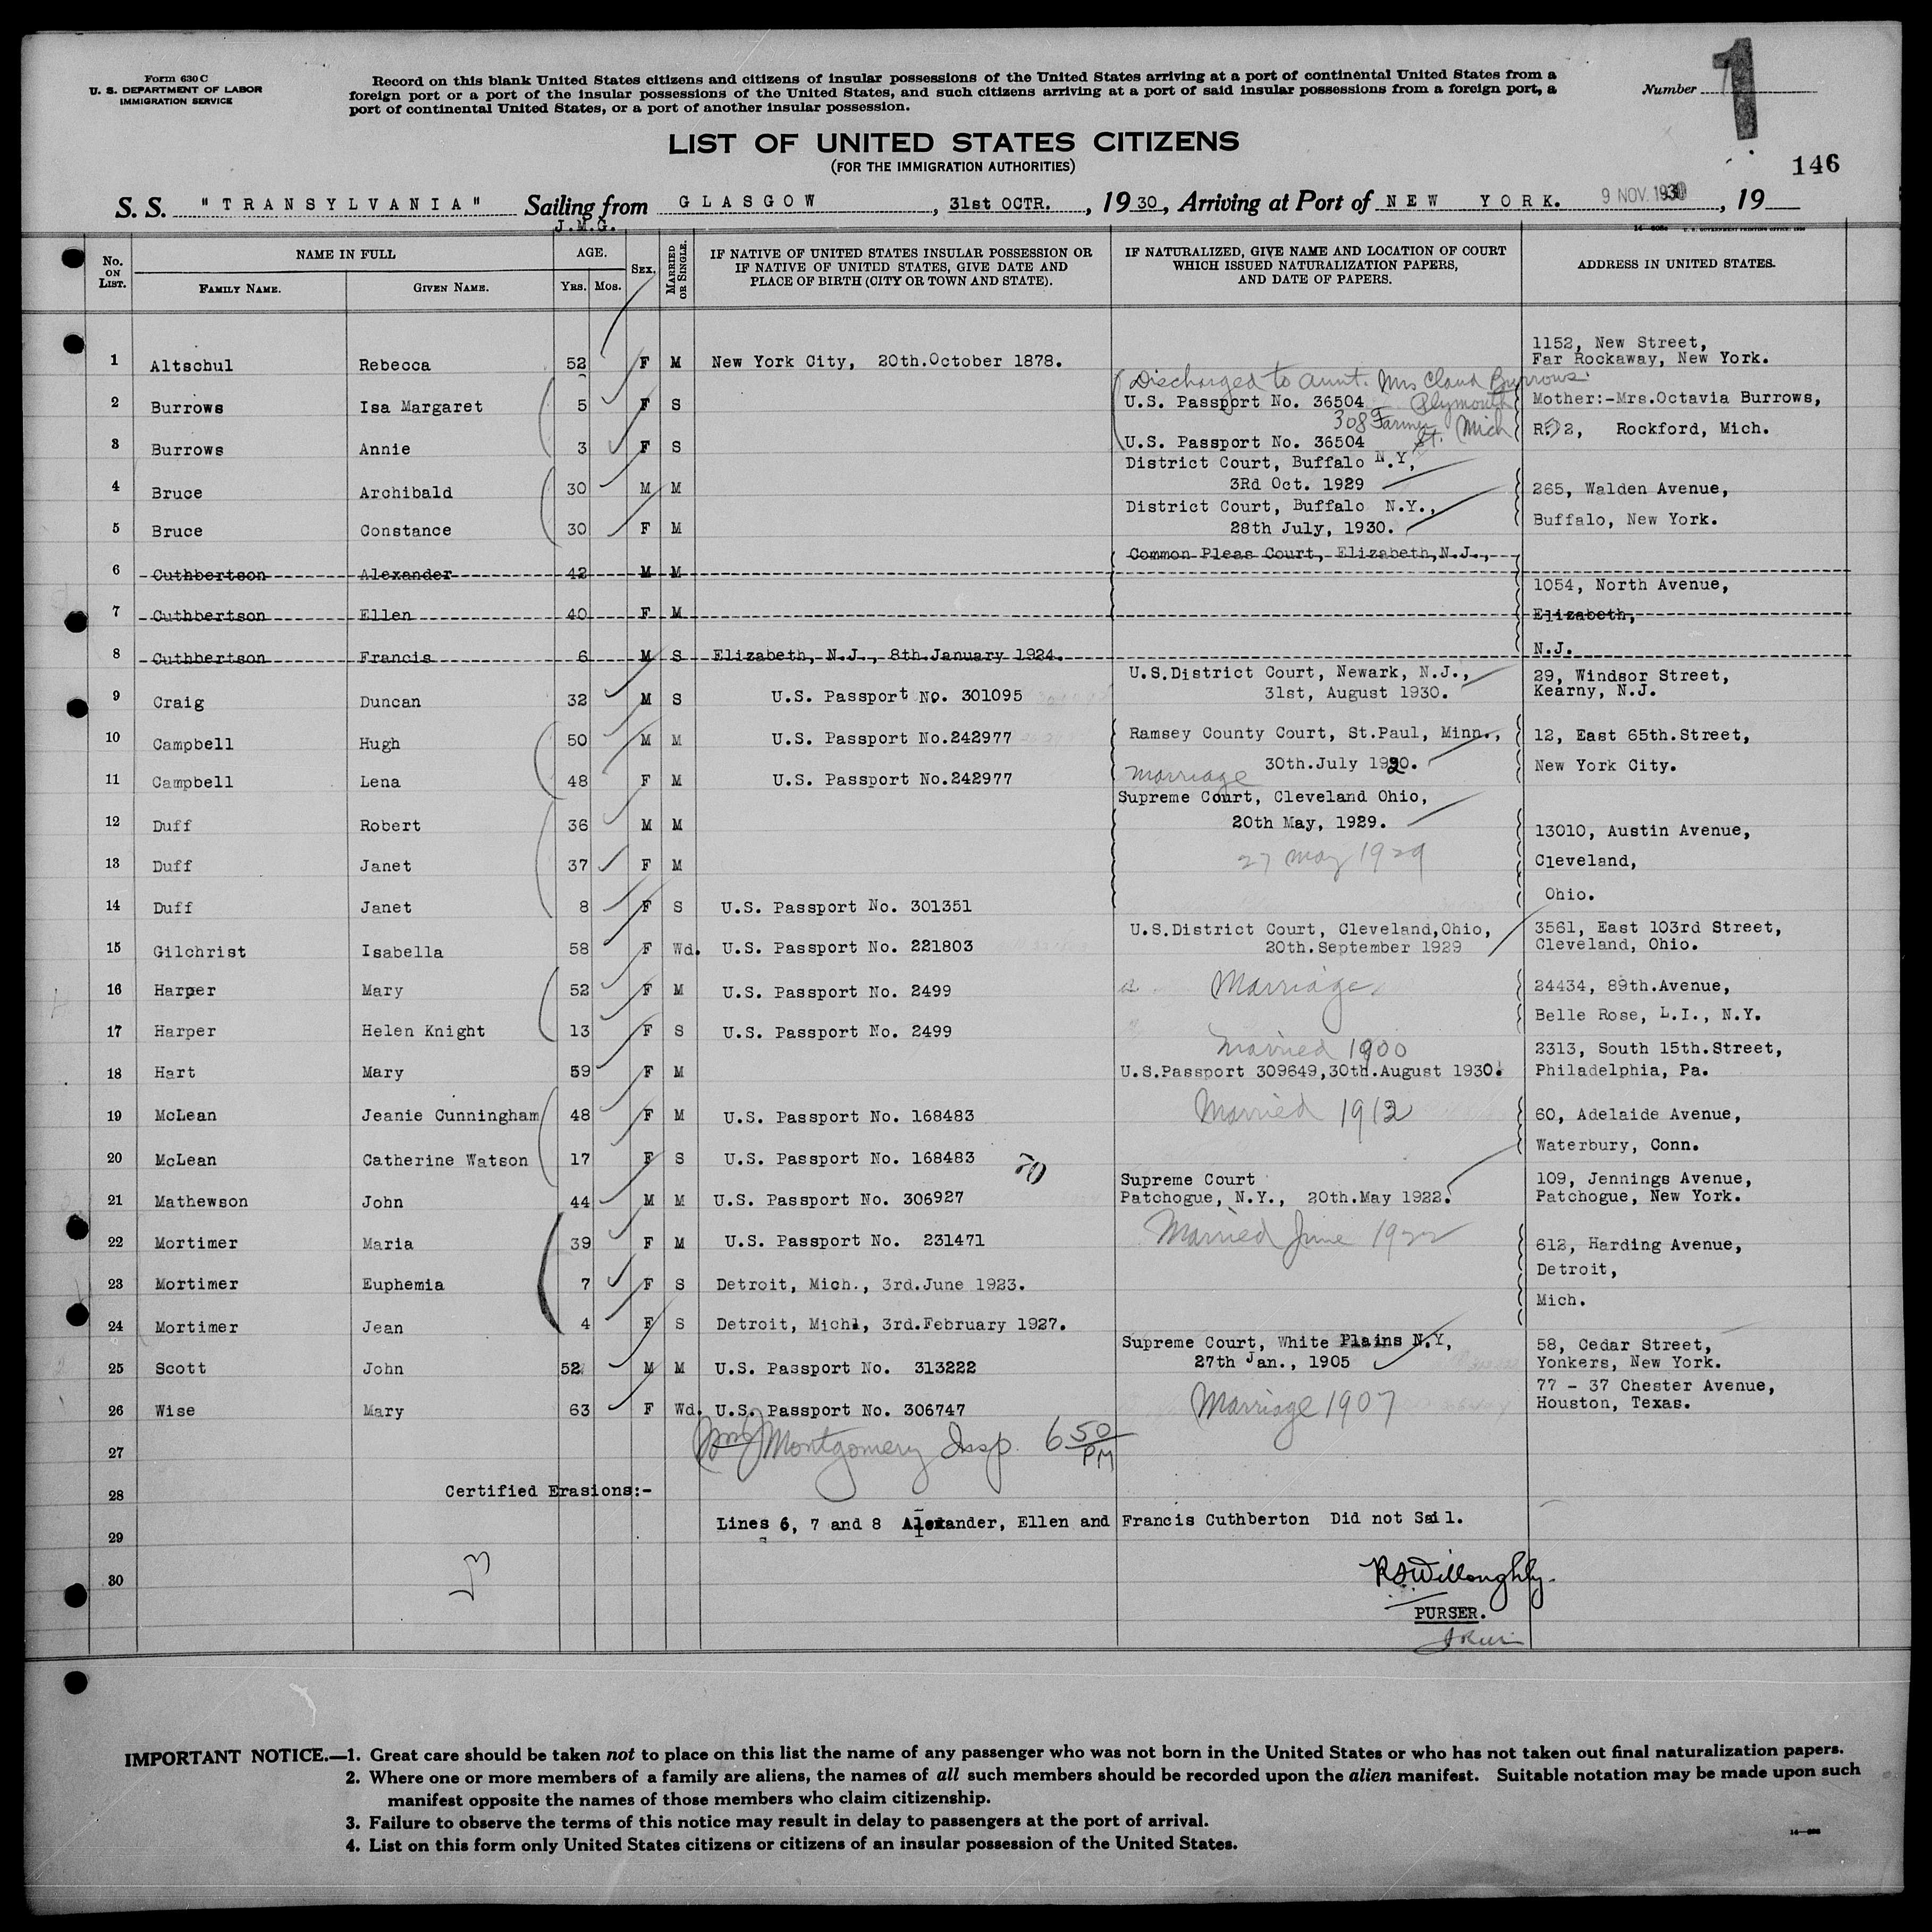 Form 630 C
U. S. DEPARTMENT OF LABOR
IMMIGRATION SERVICE
Record on this blank United States citizens and citizens of insular possessions of the United States arriving at a port of continental United States from a
foreign port or a port of the insular possessions of the United States, and such citizens arriving at a port of said insular possessions from a foreign port, a
port of continental United States, or a port of another insular possession.
Number 1
LIST OF UNITED STATES CITIZENS
(FOR THE IMMIGRATION AUTHORITIES)
146
S. S. "TRANSYLVANIA" Sailing from GLASGOW, 31st OCTR., 1930, Arriving at Port of NEW YORK. 9 NOV. 1930, 19
J.M.G.
No. ON LIST. NAME IN FULL FAMILY NAME. GIVEN NAME. AGE. YRS. MOS. SEX. MARRIED OR SINGLE. IF NATIVE OF UNITED STATES INSULAR POSSESSION OR IF NATIVE OF UNITED STATES, GIVE DATE AND PLACE OF BIRTH (CITY OR TOWN AND STATE). IF NATURALIZED, GIVE NAME AND LOCATION OF COURT WHICH ISSUED NATURALIZATION PAPERS, AND DATE OF PAPERS. ADDRESS IN UNITED STATES.
1152, New Street,
1 Altschul Rebecca 52 F M New York City, 20th.October 1878. Far Rockaway, New York.
Discharged to aunt. Mrs Claud Burrows.
2 Burrows Isa Margaret 5 F S U.S. Passport No. 36504 Plymouth Mother:-Mrs.Octavia Burrows,
308 Farmer St. Mich
3 Burrows Annie 3 F S U.S. Passport No. 36504 R. 2, Rockford, Mich.
District Court, Buffalo N.Y,
4 Bruce Archibald 30 M M 3Rd Oct. 1929 265, Walden Avenue,
District Court, Buffalo N.Y.,
5 Bruce Constance 30 F M 28th July, 1930. Buffalo, New York.
Common Pleas Court, Elizabeth,N.J.,
6 Cuthbertson Alexander 42 M M
1054, North Avenue,
7 Cuthbertson Ellen 40 F M Elizabeth,
8 Cuthbertson Francis 6 M S Elizabeth, N.J., 8th.January 1924. N.J.
U.S.District Court, Newark, N.J., 29, Windsor Street,
9 Craig Duncan 32 M S U.S. Passport No. 301095 31st, August 1930. Kearny, N.J.
10 Campbell Hugh 50 M M U.S. Passport No.242977 Ramsey County Court, St.Paul, Minn., 12, East 65th.Street,
30th.July 1920. New York City.
11 Campbell Lena 48 F M U.S. Passport No.242977 marriage
Supreme Court, Cleveland Ohio,
12 Duff Robert 36 M M 20th May, 1929. 13010, Austin Avenue,
13 Duff Janet 37 F M 27 May 1929 Cleveland,
14 Duff Janet 8 F S U.S. Passport No. 301351 Ohio.
U.S.District Court, Cleveland,Ohio, 3561, East 103rd Street,
15 Gilchrist Isabella 58 F Wd. U.S. Passport No. 221803 20th.September 1929 Cleveland, Ohio.
16 Harper Mary 52 F M U.S. Passport No. 2499 Marriage 24434, 89th.Avenue,
17 Harper Helen Knight 13 F S U.S. Passport No. 2499 Belle Rose, L.I., N.Y.
Married 1900 2313, South 15th.Street,
18 Hart Mary 59 F M U.S.Passport 309649,30th.August 1930. Philadelphia, Pa.
19 McLean Jeanie Cunningham 48 F M U.S. Passport No. 168483 Married 1912 60, Adelaide Avenue,
Waterbury, Conn.
20 McLean Catherine Watson 17 F S U.S. Passport No. 168483
Supreme Court 109, Jennings Avenue,
21 Mathewson John 44 M M U.S. Passport No. 306927 Patchogue, N.Y., 20th.May 1922. Patchogue, New York.
22 Mortimer Maria 39 F M U.S. Passport No. 231471 Married June 1922 612, Harding Avenue,
Detroit,
23 Mortimer Euphemia 7 F S Detroit, Mich., 3rd.June 1923.
Mich.
24 Mortimer Jean 4 F S Detroit, Michl, 3rd.February 1927.
Supreme Court, White Plains N.Y, 58, Cedar Street,
25 Scott John 52 M M U.S. Passport No. 313222 27th Jan., 1905 Yonkers, New York.
77 - 37 Chester Avenue,
26 Wise Mary 63 F Wd. U.S. Passport No. 306747 Marriage 1907 Houston, Texas.
27 Montgomery Insp. 6 50 PM
28 Certified Erasions:-
29 Lines 6, 7 and 8 Alexander, Ellen and Francis Cuthberton Did not Sail.
30
R S Willoughby.
PURSER.
IMPORTANT NOTICE.—1. Great care should be taken not to place on this list the name of any passenger who was not born in the United States or who has not taken out final naturalization papers.
2. Where one or more members of a family are aliens, the names of all such members should be recorded upon the alien manifest. Suitable notation may be made upon such
manifest opposite the names of those members who claim citizenship.
3. Failure to observe the terms of this notice may result in delay to passengers at the port of arrival.
4. List on this form only United States citizens or citizens of an insular possession of the United States.